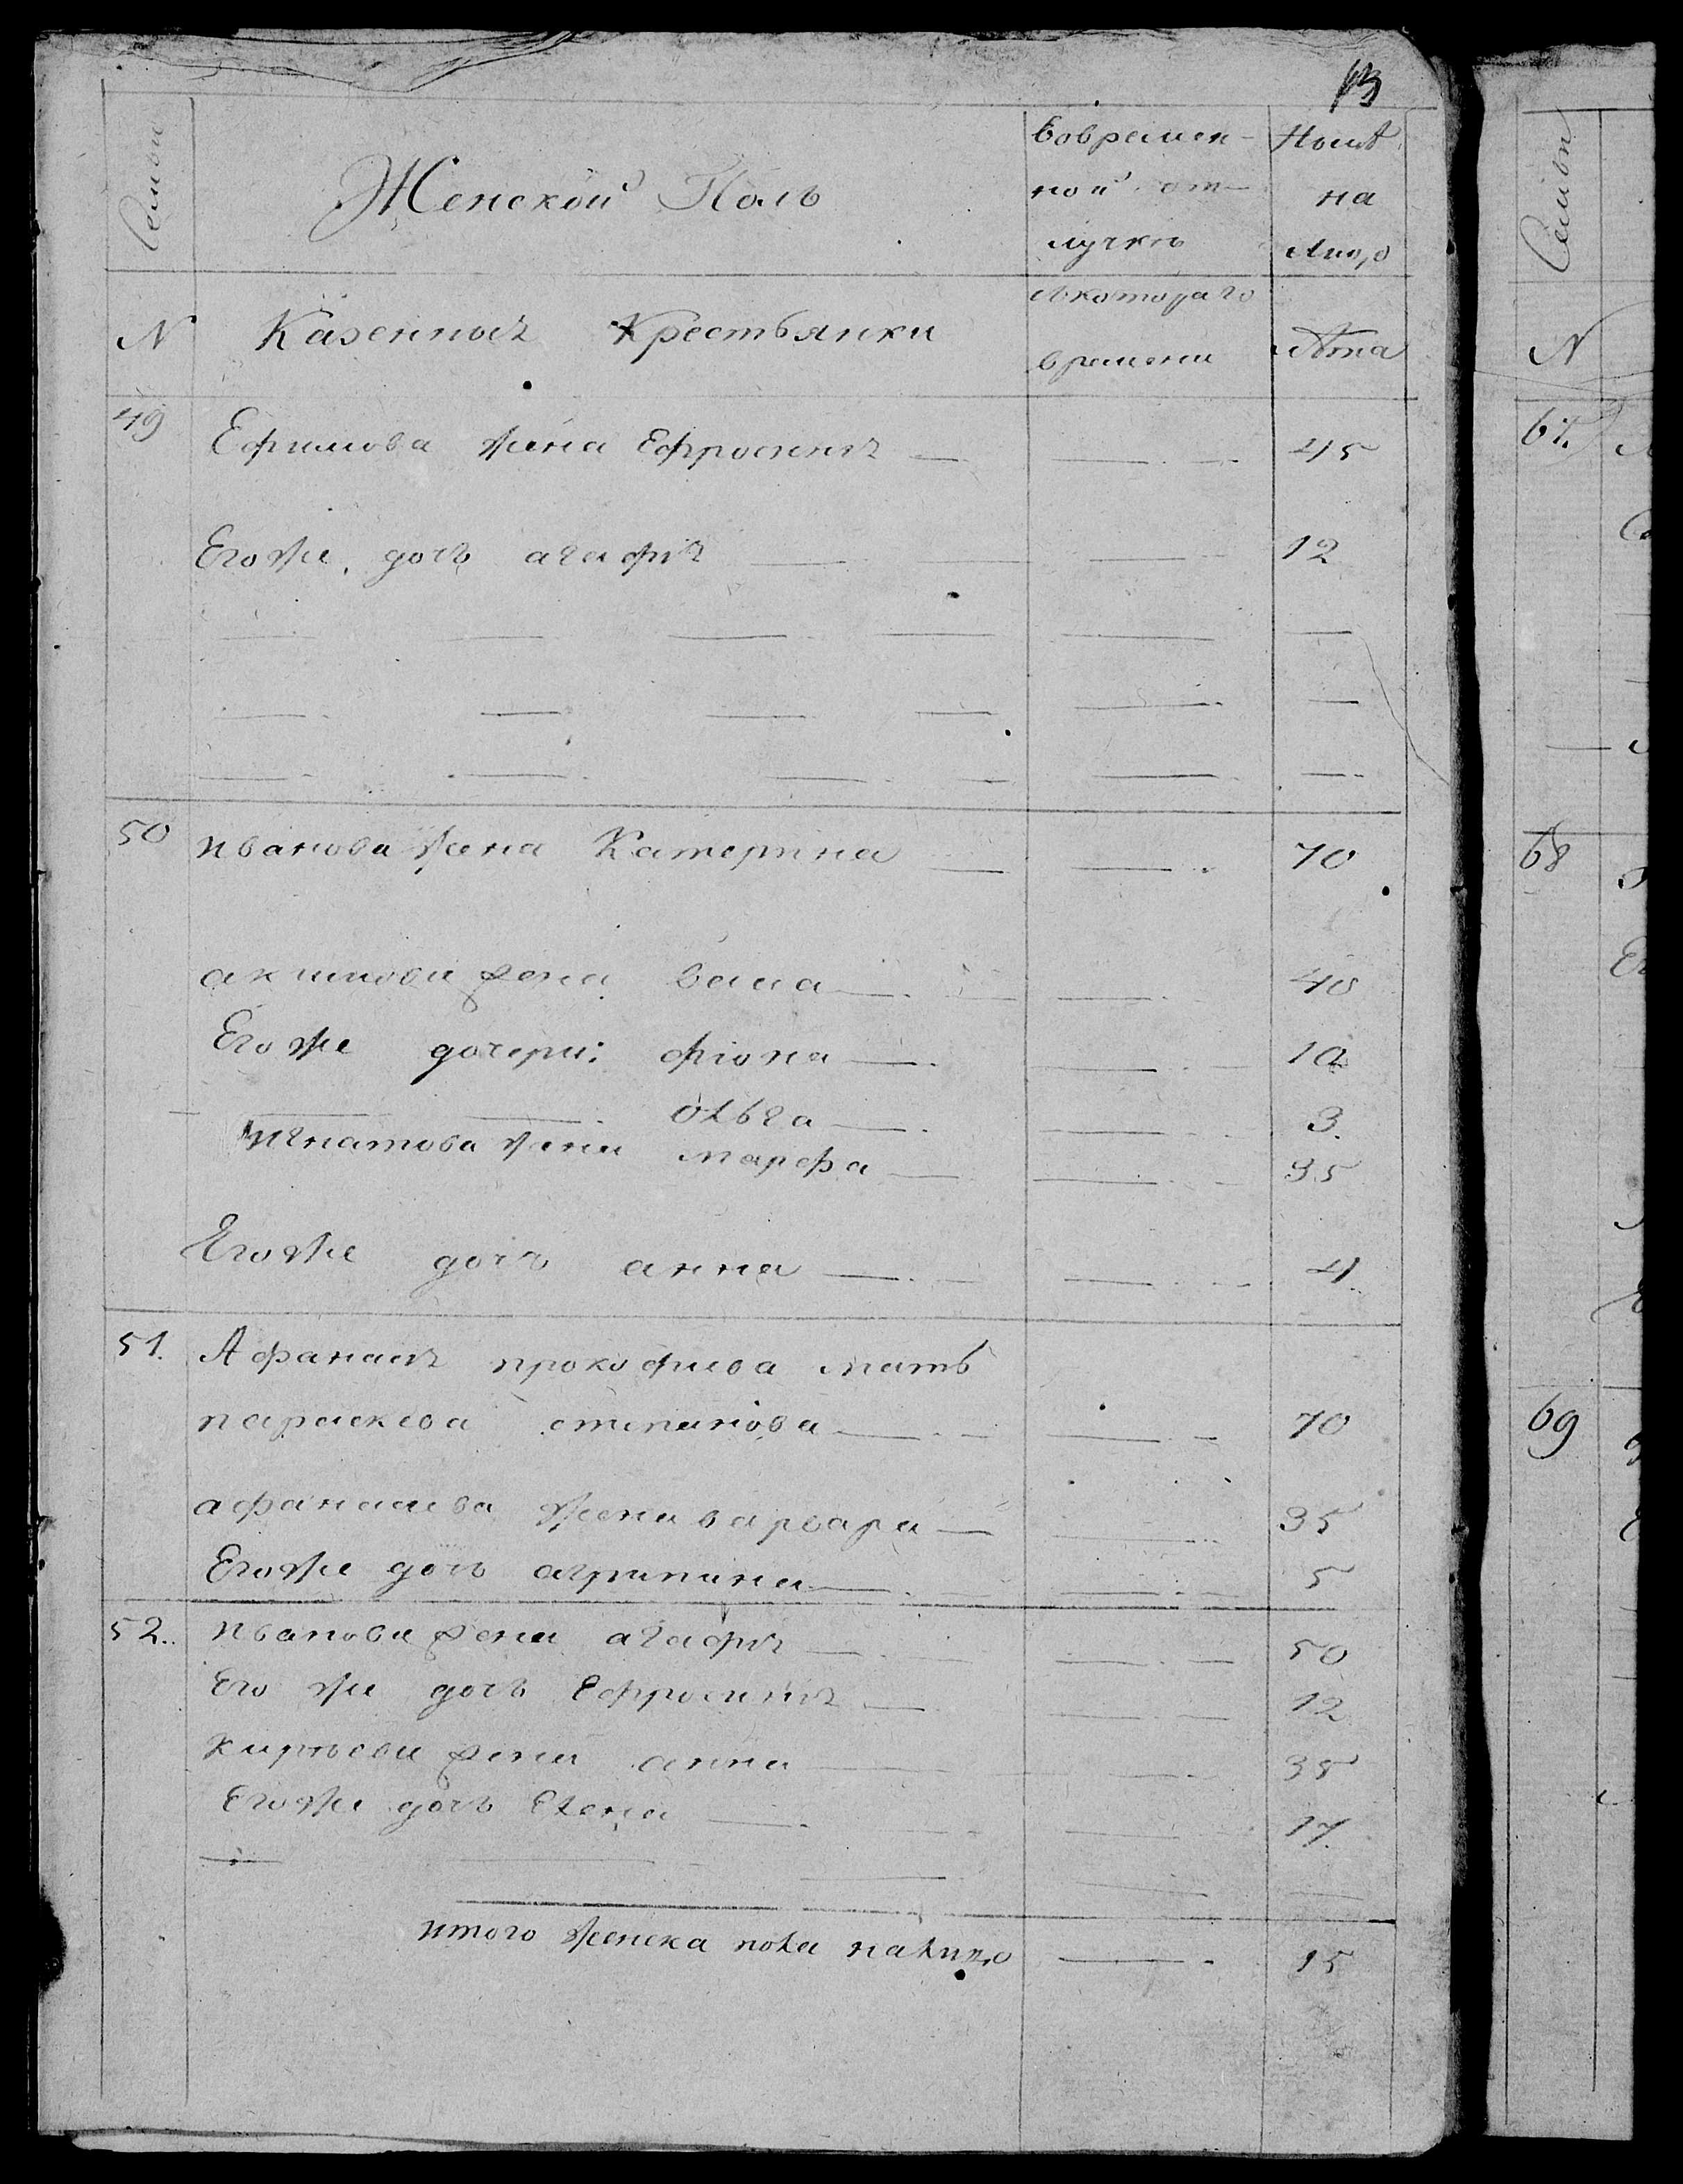 13
Семьи
Женской Полъ
Вовремен-
ной от-
лучкѣ
Нынѣ
на
лицо
N
Казенныя Крестьянки
скотораго
времени
лѣта
49 Ефимова жена Ефросинья 45
Егоже дочь агафия 12
50 иванова жена Катерина 70
акимова жена васса 40
Егоже дочери: фiона 12
олвга 3.
игнатова жена марфа 35
Егоже дочь анна 4
51. Афанасия прокофиева мать
параскева степанова 70
афанасиева жена варвара 35
Егоже дочь агрипина 5
52. иванова жена агафия 50
Его же дочь Ефросиния 12
жена анна 38
Егоже дочь Елена 17.
итого женска пола налицо 15
Семьи
N
67.
68
69